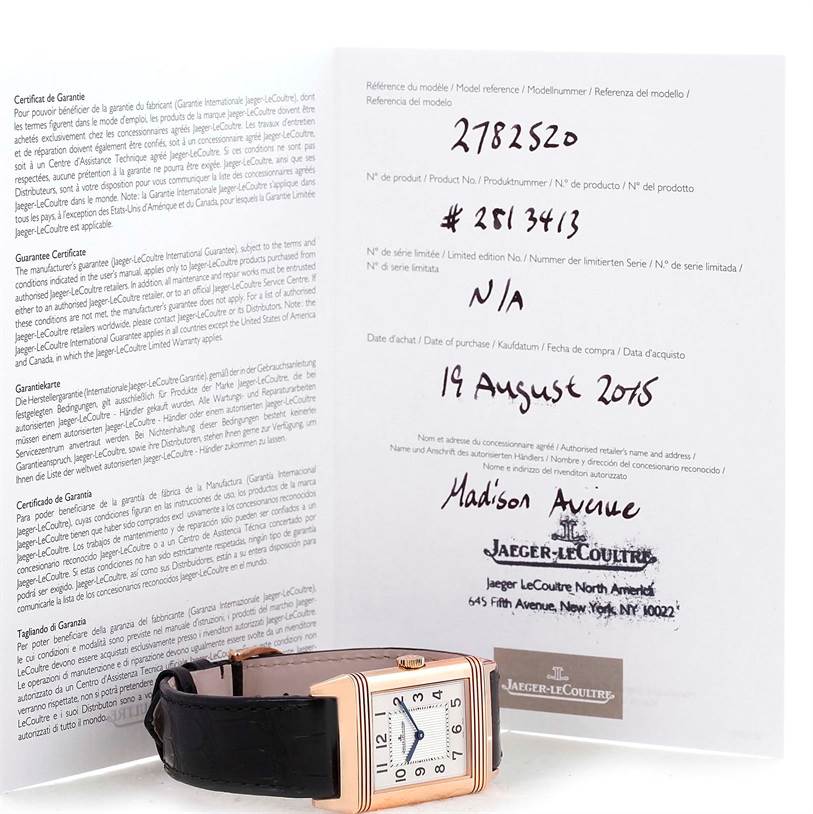 Certificat de Garantie
Pour pouvoir bénéficier de la garantie du fabricant (Garantie Internationale Jaeger-LeCoultre), dont
les termes figurent dans le mode d'emploi, les produits de la marque Jaeger-LeCoultre doivent être
achetés exclusivement chez les concessionnaires agréés Jaeger-LeCoultre. Les travaux d'entretien
et de réparation doivent également être confiés, soit à un concessionnaire agréé Jaeger-LeCoultre,
soit à un Centre d'Assistance Technique agréé Jaeger-LeCoultre. Si ces conditions ne sont pas
respectées, aucune prétention à la garantie ne pourra être exigée. Jaeger-LeCoultre, ainsi que ses
Distributeurs, sont à votre disposition pour vous communiquer la liste des concessionnaires agréés
Jaeger-LeCoultre dans le monde. Note: la Garantie Internationale Jaeger-LeCoultre s'applique dans
tous les pays, à l'exception des Etats-Unis d'Amérique et du Canada, pour lesquels la Garantie Limitée
Jaeger-LeCoultre est applicable.
Guarantee Certificate
The manufacturer's guarantee (Jaeger-LeCoultre International Guarantee), subject to the terms and
conditions indicated in the user's manual, applies only to Jaeger-LeCoultre products purchased from
authorised Jaeger-LeCoultre retailers. In addition, all maintenance and repair works must be entrusted
either to an authorised Jaeger-LeCoultre retailer, or to an official Jaeger-LeCoultre Service Centre. If
these conditions are not met, the manufacturer's guarantee does not apply. For a list of authorised
Jaeger-LeCoultre retailers worldwide, please contact Jaeger-LeCoultre or its Distributors. Note: the
Jaeger-LeCoultre International Guarantee applies in all countries except the United States of America
and Canada, in which the Jaeger-LeCoultre Limited Warranty applies.
Garantiekarte
Die Herstellergarantie (Internationale Jaeger-LeCoultre Garantie), gemäß der in der Gebrauchsanleitung
festgelegten Bedingungen, gilt ausschließlich für Produkte der Marke Jaeger-LeCoultre, die bei
autorisierten Jaeger-LeCoultre - Händler gekauft wurden. Alle Wartungs- und Reparaturarbeiten
müssen einem autorisierten Jaeger-LeCoultre - Händler oder einem autorisierten Jaeger-LeCoultre
Servicezentrum anvertraut werden. Bei Nichteinhaltung dieser Bedingungen besteht keinerlei
Garantieanspruch. Jaeger-LeCoultre, sowie ihre Distributoren, stehen Ihnen gerne zur Verfügung, um
Ihnen die Liste der weltweit autorisierten Jaeger-LeCoultre - Händler zukommen zu lassen.
Certificado de Garantía
Para poder beneficiarse de la garantía de fábrica de la Manufactura (Garantía Internacional
Jaeger-LeCoultre), cuyas condiciones figuran en las instrucciones de uso, los productos de la marca
Jaeger-LeCoultre tienen que haber sido comprados excl usivamente a los concesionarios reconocidos
Jaeger-LeCoultre. Los trabajos de mantenimiento y de reparación sólo pueden ser confiados a un
concesionario reconocido Jaeger-LeCoultre o a un Centro de Asistencia Técnica concertado por
Jaeger-LeCoultre. Si estas condiciones no han sido estrictamente respetadas, ningún tipo de garantía
podrá ser exigido. Jaeger-LeCoultre, así como sus Distribuidores, están a su entera disposición para
comunicarle la lista de los concesionarios reconocidos Jaeger-LeCoultre en el mundo.
Tagliando di Garanzia
Per poter beneficiare della garanzia del fabbricante (Garanzia Internazionale Jaeger-LeCoultre),
le cui condizioni e modalità sono previste nel manuale d'istruzioni, i prodotti del marchio Jaeger-
LeCoultre devono essere acquistati esclusivamente presso i rivenditori autorizzati Jaeger-LeCoultre.
Le operazioni di manutenzione e di riparazione devono ugualmente essere svolte da un rivenditore
autorizzato da un Centro d'Assistenza Tecnica condizioni non
verranno rispettate, non si potrà pretendere
LeCoultre e i suoi Distributori sono a
autorizzati di tutto il mondo.
Référence du modèle / Model reference / Modellnummer / Referenza del modello /
Referencia del modelo
2782520
N° de produit / Product No. / Produktnummer / N.° de producto / N° del prodotto
# 2813413
N° de série limitée / Limited edition No. / Nummer der limitierten Serie / N.° de serie limitada /
N° di serie limitata
N/A
Date d'achat / Date of purchase / Kaufdatum / Fecha de compra / Data d'acquisto
19 August 2015
Nom et adresse du concessionnaire agréé / Authorised retailer's name and address /
Name und Anschrift des autorisierten Händlers / Nombre y dirección del concesionario reconocido /
Nome e indirizzo del rivenditori autorizzato
Madison Avenue
JAEGER-LECOULTRE
Jaeger LeCoultre North America
645 Fifth Avenue, New York, NY 10022
JAEGER-LECOULTRE
12 1 2 3 4 5 6 7 8 9 10 11